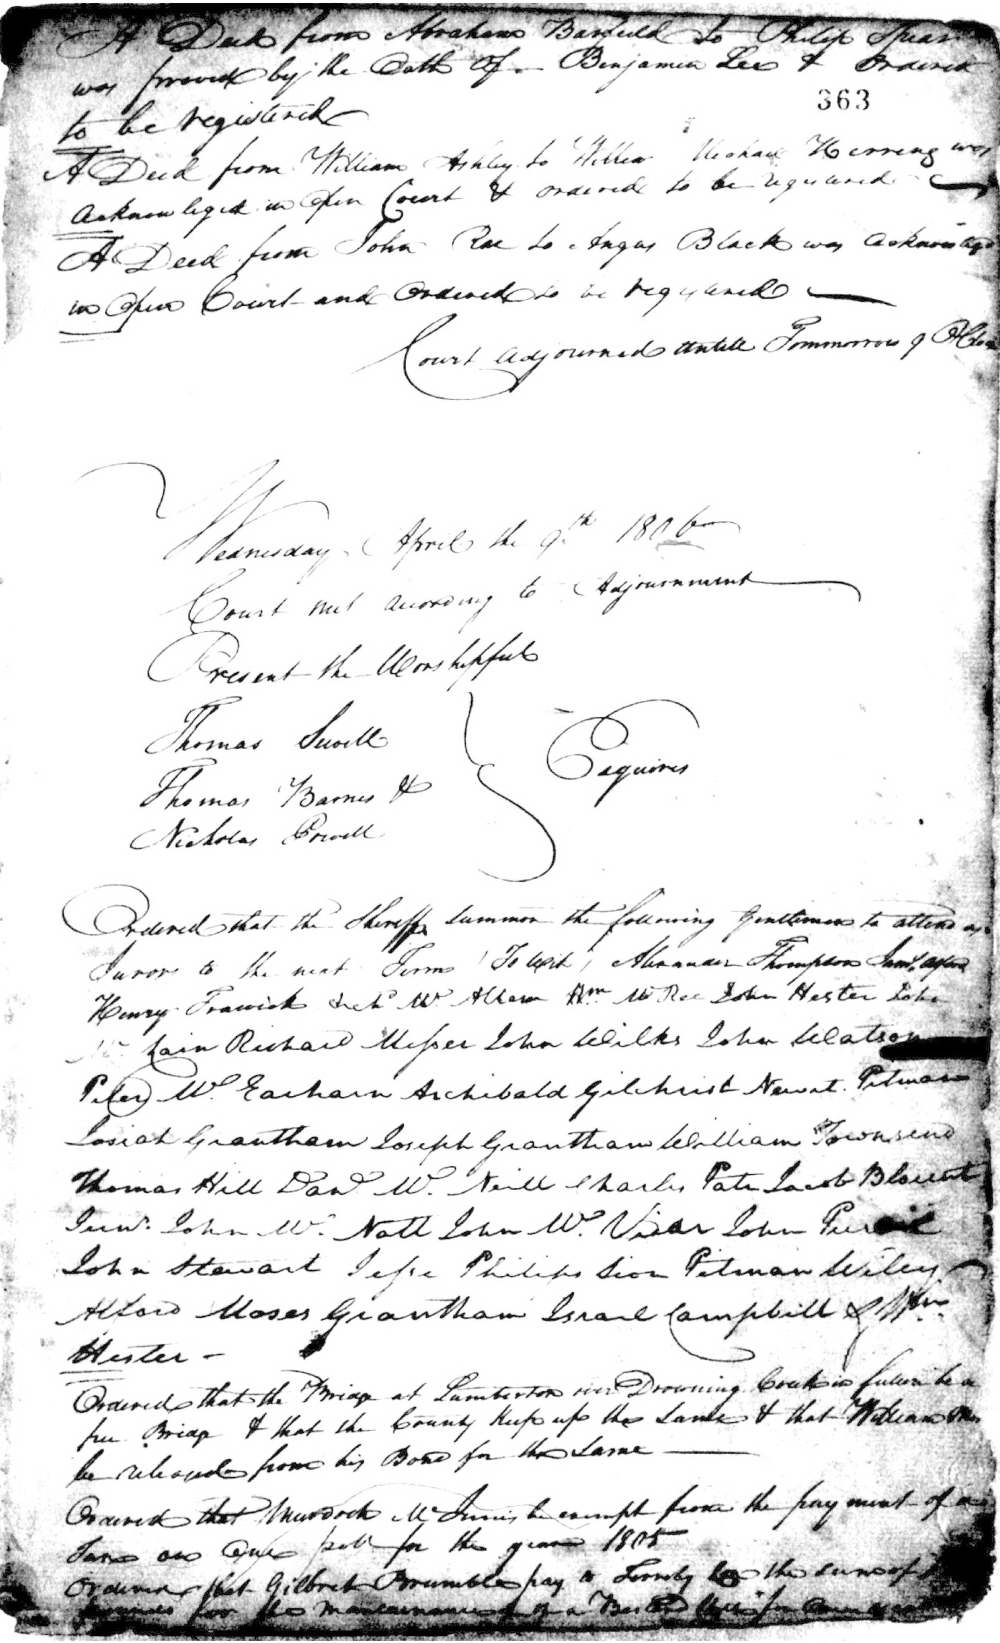 A Deed from Abraham Barfield to Philip Spear
was proved by the Oath of Benjamin Lee & Ordered
363
to be registered
A Deed from William Ashley to Michael Herring was
acknowleged in Open Court & ordered to be registered
A Deed from John Rae to Angus Black was acknowleged
in Open Court and Ordered to be registered
Court adjourned untill Tommorrow 9 OClock
Wednesday April the 9th 1806
Court met according to Adjournment
Present the Worshipful
Thomas Sewell
Esquires
Thomas Barnes &
Nicholas Powell
Ordered that the Sheriff summon the following Gentlemen to attend as
Jurors to the next Term (To wit) Alexander Thompson
Henry Trawick Mc Allum Wm McRee John Hester John
Mc Cain Richard Messer John Wilks John Watson
Peter Mc Eachern Archibald Gilchrist Newit Pitman
Josiah Grantham Joseph Grantham William Townsend
Thomas Hill Dand Mc Neill Charles Pate Jacob Blount
Junr. John Mc Natt John Mc John
John Stewart Jesse Philips Sion Pitman Wiley
Alford Moses Grantham Israel Campbell & Wm
Hester -
Ordered that the Bridge at Lumberton over Drowning Creek in future be a
free Bridge & that the County keep up the same & that William
be released from his Bond for the same
Ordered that Murdock Mc Innis be exempt from the payment of a
Tax on one pole for the year 1805
Ordered that Gilbert Brumble pay to the sum of
for the maintainance of a Bastard for